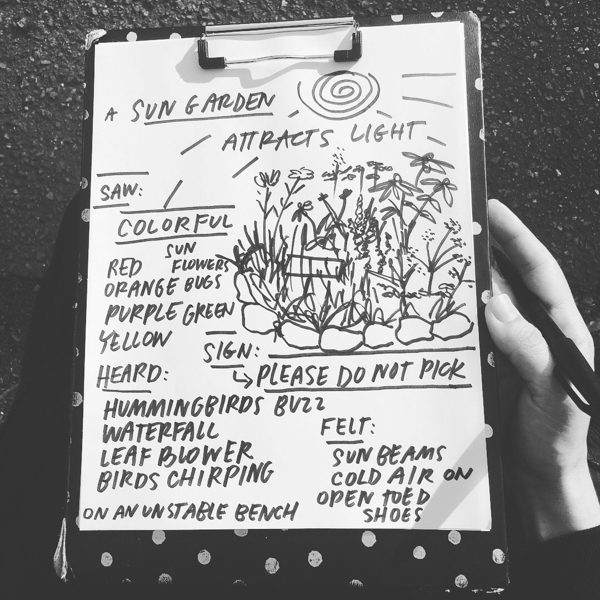 A SUN GARDEN
ATTRACTS LIGHT
SAW:
COLORFUL
RED
ORANGE
PURPLE GREEN
YELLOW
SUN
FLOWERS
BUGS
SIGN:
PLEASE DO NOT PICK
HEARD:
HUMMINGBIRDS BUZZ
WATERFALL
LEAF BLOWER
BIRDS CHIRPING
FELT:
SUN BEAMS
COLD AIR ON
OPEN TOED
SHOES
ON AN UNSTABLE BENCH